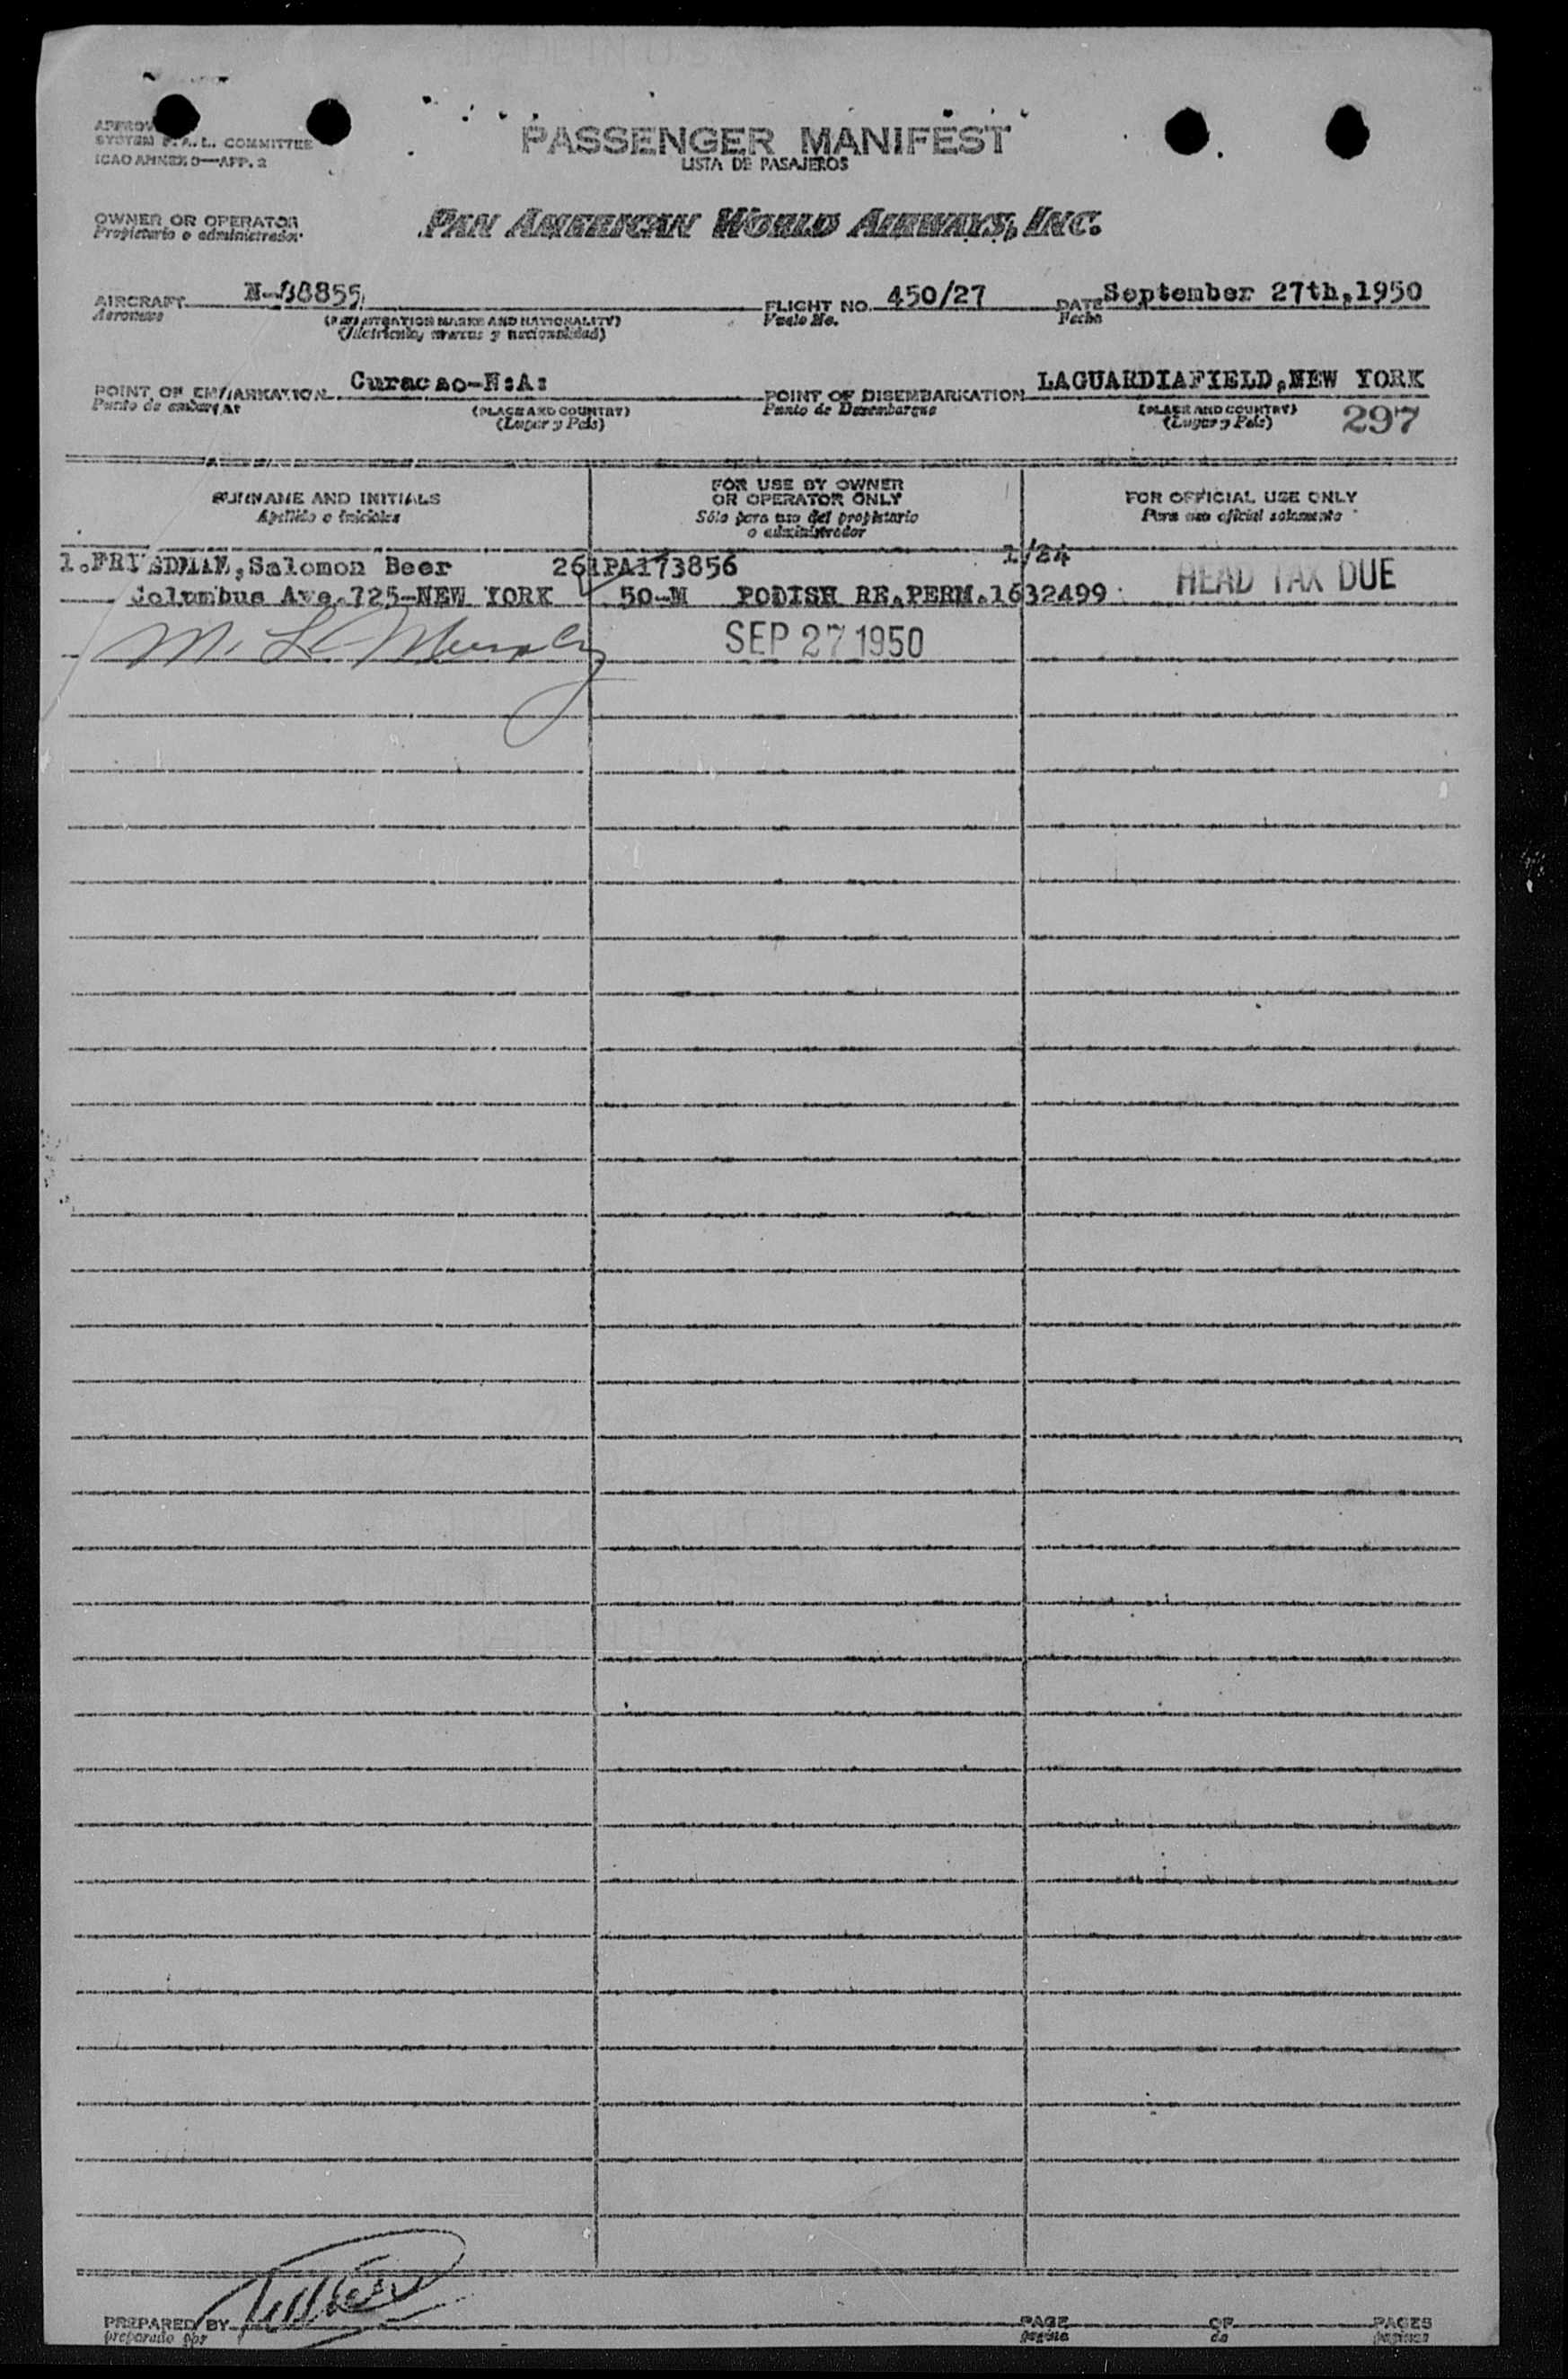 PASSENGER MANIFEST
LISTA DE PASAJEROS
SYSTEM F.A.L. COMMITTEE
ICAO ANNEX 9—APP. 2
OWNER OR OPERATOR
Propietario o administrador
PAN AMERICAN WORLD AIRWAYS, INC.
AIRCRAFT N-88855 FLIGHT NO. 450/27 DATE September 27th,1950
Aeronave (REGISTRATION MARKS AND NATIONALITY) Vuelo No. Fecha
(Matrícula, marcas y nacionalidad)
POINT OF EMBARKATION Curacao-N:A: POINT OF DISEMBARKATION LAGUARDIAFIELD,NEW YORK
Punto de embarque (PLACE AND COUNTRY) Punto de Desembarque (PLACE AND COUNTRY)
(Lugar y País) (Lugar y País) 297
SURNAME AND INITIALS
Apellido e iniciales
FOR USE BY OWNER
OR OPERATOR ONLY
Sólo para uso del propietario
o administrador
FOR OFFICIAL USE ONLY
Para uso oficial solamente
1. Salomon Beer 261PA173856 1/24
Columbus Ave.725-NEW YORK 50-M PODISH RE.PERM.1632499 HEAD TAX DUE
M. L. Murphy SEP 27 1950
PREPARED BY PAGE OF PAGES
preparado por página de páginas